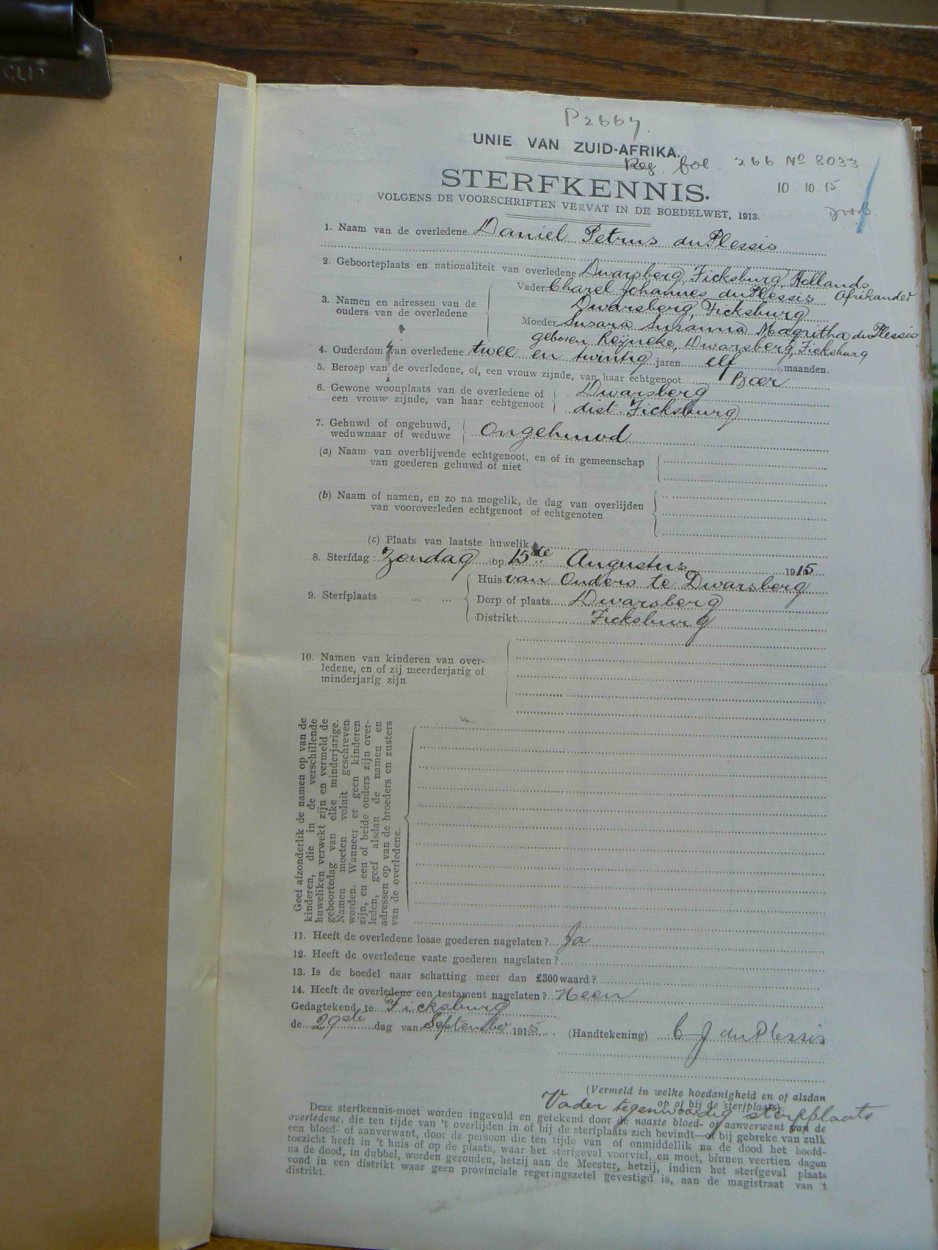 P2667.
UNIE VAN ZUID-AFRIKA.
Reg fol 266 No 8033
10.10.15
STERFKENNIS.
VOLGENS DE VOORSCHRIFTEN VERVAT IN DE BOEDELWET, 1913.
1. Naam van de overledene Daniel Petrus du Plessis
2. Geboorteplaats en nationaliteit van overledene Dwarsberg, Ficksburg, Hollands Afrikander
3. Namen en adressen van de ouders van de overledene
Vader Charel Johannes du Plessis
Dwarsberg, Ficksburg
Moeder Susara Susanna Magritha du Plessis
geboren Reyneke, Dwarsberg, Ficksburg
4. Ouderdom van overledene twee en twintig jaren elf maanden.
5. Beroep van de overledene, of, een vrouw zijnde, van haar echtgenoot Boer
6. Gewone woonplaats van de overledene of Dwarsberg
een vrouw zijnde, van haar echtgenoot dist. Ficksburg
7. Gehuwd of ongehuwd, weduwnaar of weduwe Ongehuwd
(a) Naam van overblijvende echtgenoot, en of in gemeenschap
van goederen gehuwd of niet
(b) Naam of namen, en zo na mogelik, de dag van overlijden
van vooroverleden echtgenoot of echtgenoten
(c) Plaats van laatste huwelik
8. Sterfdag: Zondag op 15de Augustus 1915
9. Sterfplaats
Huis van Ouders te Dwarsberg
Dorp of plaats Dwarsberg
Distrikt Ficksburg
10. Namen van kinderen van over-
ledene, en of zij meerderjarig of
minderjarig zijn
Geef afzonderlik de namen op van de
kinderen, die in de verschillende
huweliken verwekt zijn en vermeld de
geboortedag van elke minderjarige.
Namen moeten voluit geschreven
worden. Wanneer er geen kinderen
zijn, en een of beide ouders zijn over-
leden, geef alsdan de namen en
adressen op van de broeders en zusters
van de overledene.
11. Heeft de overledene losse goederen nagelaten? Ja
12. Heeft de overledene vaste goederen nagelaten?
13. Is de boedel naar schatting meer dan £300 waard?
14. Heeft de overledene een testament nagelaten? Neen
Gedagtekend te Ficksburg
de 29ste dag van September 1915 (Handtekening) C J du Plessis
(Vermeld in welke hoedanigheid en of alsdan
op of bij de sterfplaats)
Vader tegenwoordig sterfplaats
Deze sterfkennis moet worden ingevuld en getekend door de naaste bloed- of aanverwant van de
overledene, die ten tijde van 't overlijden in of bij de sterfplaats zich bevindt—of bij gebreke van zulk
een bloed- of aanverwant, door de persoon die ten tijde van of onmiddellik na de dood het hoofd-
toezicht heeft in 't huis of op de plaats, waar het sterfgeval voorviel, en moet, binnen veertien dagen
na de dood, in dubbel, worden gezonden, hetzij aan de Meester, hetzij, indien het sterfgeval plaats
vond in een distrikt waar geen provinciale regeringszetel gevestigd is, aan de magistraat van 't
distrikt.